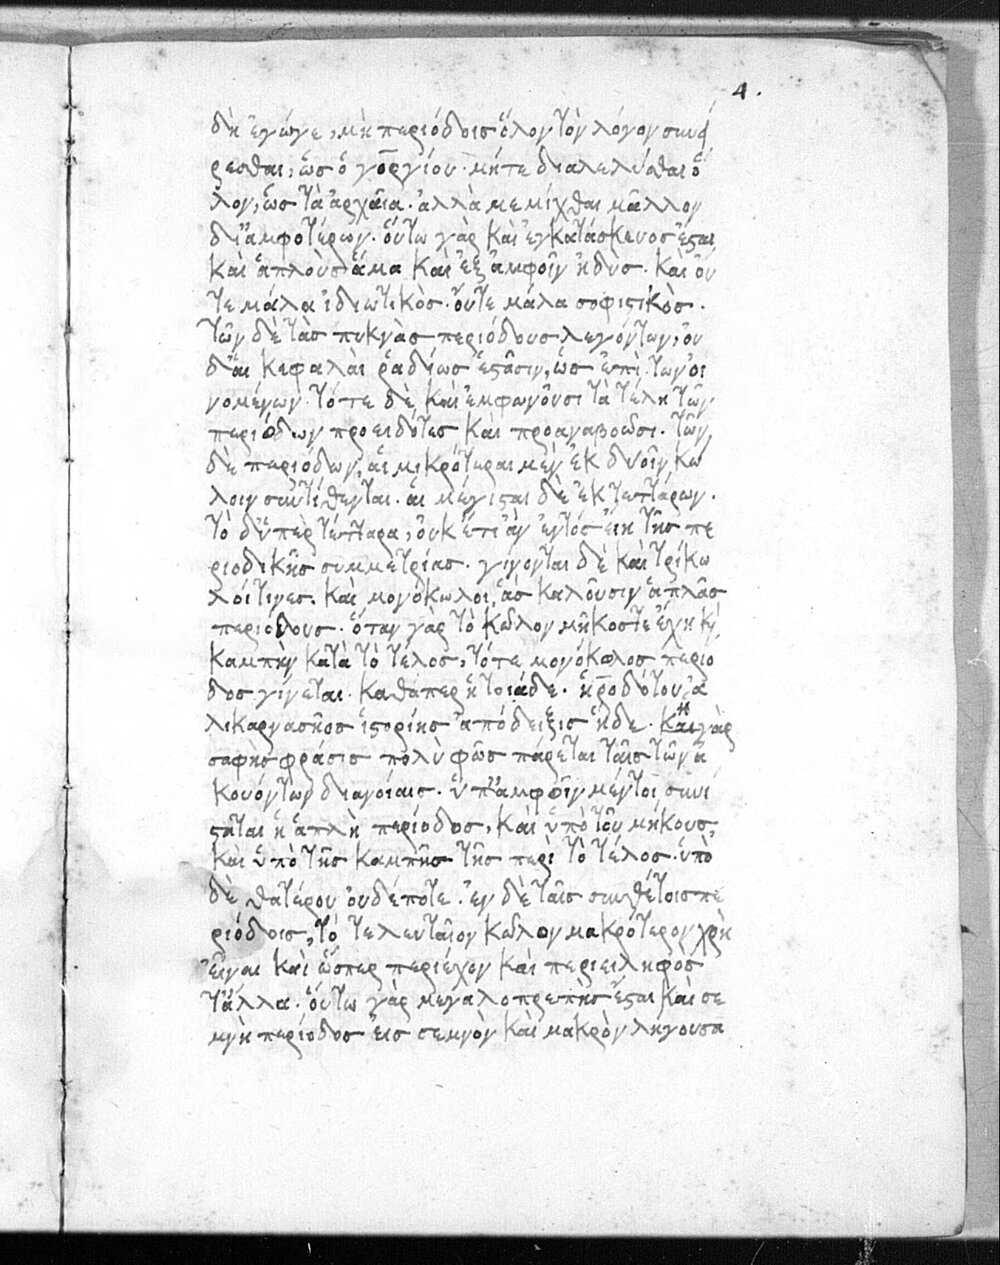 4.
δὴ ἔγωγε, μὴ περιόδοισ ὅλον τὸν λόγον συνεί
ρεσθαι, ὡσ ὁ γοργίου· μήτε διαλελύσθαι ὅ
λον, ὡσ τὰ ἀρχαῖα· ἀλλὰ μεμίχθαι μᾶλλον
δι ἀμφοτέρων· οὕτω γὰρ καὶ ἐγκατάσκευοσ ἔσται
καὶ ἁπλοὺσ ἅμα καὶ ἐξ ἀμφοῖν ἡδὺσ· καὶ οὔ
τε μάλα ἰδιωτικὸσ· οὔτε μάλα σοφιστικὸσ.
τῶν δὲ τὰσ πυκνὰσ περιόδουσ λεγόντων, οὐ
δ' αἱ κεφαλαὶ ῥαδίωσ ἑστᾶσιν, ὡσ ἐπὶ τῶν οἰ
νομένων· τότε δὲ καὶ ἐμφωνοῦσι τὰ τέλη τῶν
περιόδων προειδότεσ καὶ προαναβοῶσι. τῶν
δὲ περιόδων, αἱ μικρότεραι μὲν ἐκ δυοῖν κώ
λοιν συντίθενται· αἱ μέγισται δὲ ἐκ τεττάρων.
τὸ δ' ὑπὲρ τέτταρα, οὐκ έτι ἀν ἐντόσ εἴη τῆσ πε
ριοδικῆσ συμμετρίασ· γίνονται δὲ καὶ τρίκω
λοί τινεσ. καὶ μονόκωλοι, ἁσ καλοῦσιν ἁπλᾶσ
περιόδουσ· ὅταν γὰρ τὸ κῶλον μῆκοσ τε ἔχη κὶ
καμπὴν κατὰ τὸ τέλοσ, τότε μονόκωλοσ περίο
δοσ γίνεται· καθάπερ ἡ τοιάδε· ἡροδότου ἁ
λικαρνασῆοσ ἱστορίησ ἀπόδειξισ ἥδε· καὶ ἡ γὰρ
σαφὴσ φράσισ πολὺ φῶσ πάρεται ταῖσ τῶν ἀ
κουόντων διανοίαισ· ὑπ' ἀμφοῖν μέντοι συνί
σταται ἡ ἁπλῆ περίοδοσ, καὶ ὑπὸ τοῦ μήκουσ,
καὶ ὑπὸ τῆσ καμπῆσ τῆσ περὶ τὸ τέλοσ· ὑπὸ
δὲ θατέρου οὐδέποτε· ἐν δὲ ταῖσ συνθέτοισ πε
ριόδοισ, τὸ τελευταῖον κῶλον μακρότερον χρὴ
εἶναι καὶ ὥσπερ περιέχον καὶ περιειληφὸσ
τἄλλα· οὕτω γὰρ μεγαλοπρεπὴσ ἔσται καὶ σε
μνὴ περίοδοσ εἰσ σεμνὸν καὶ μακρὸν λήγουσα